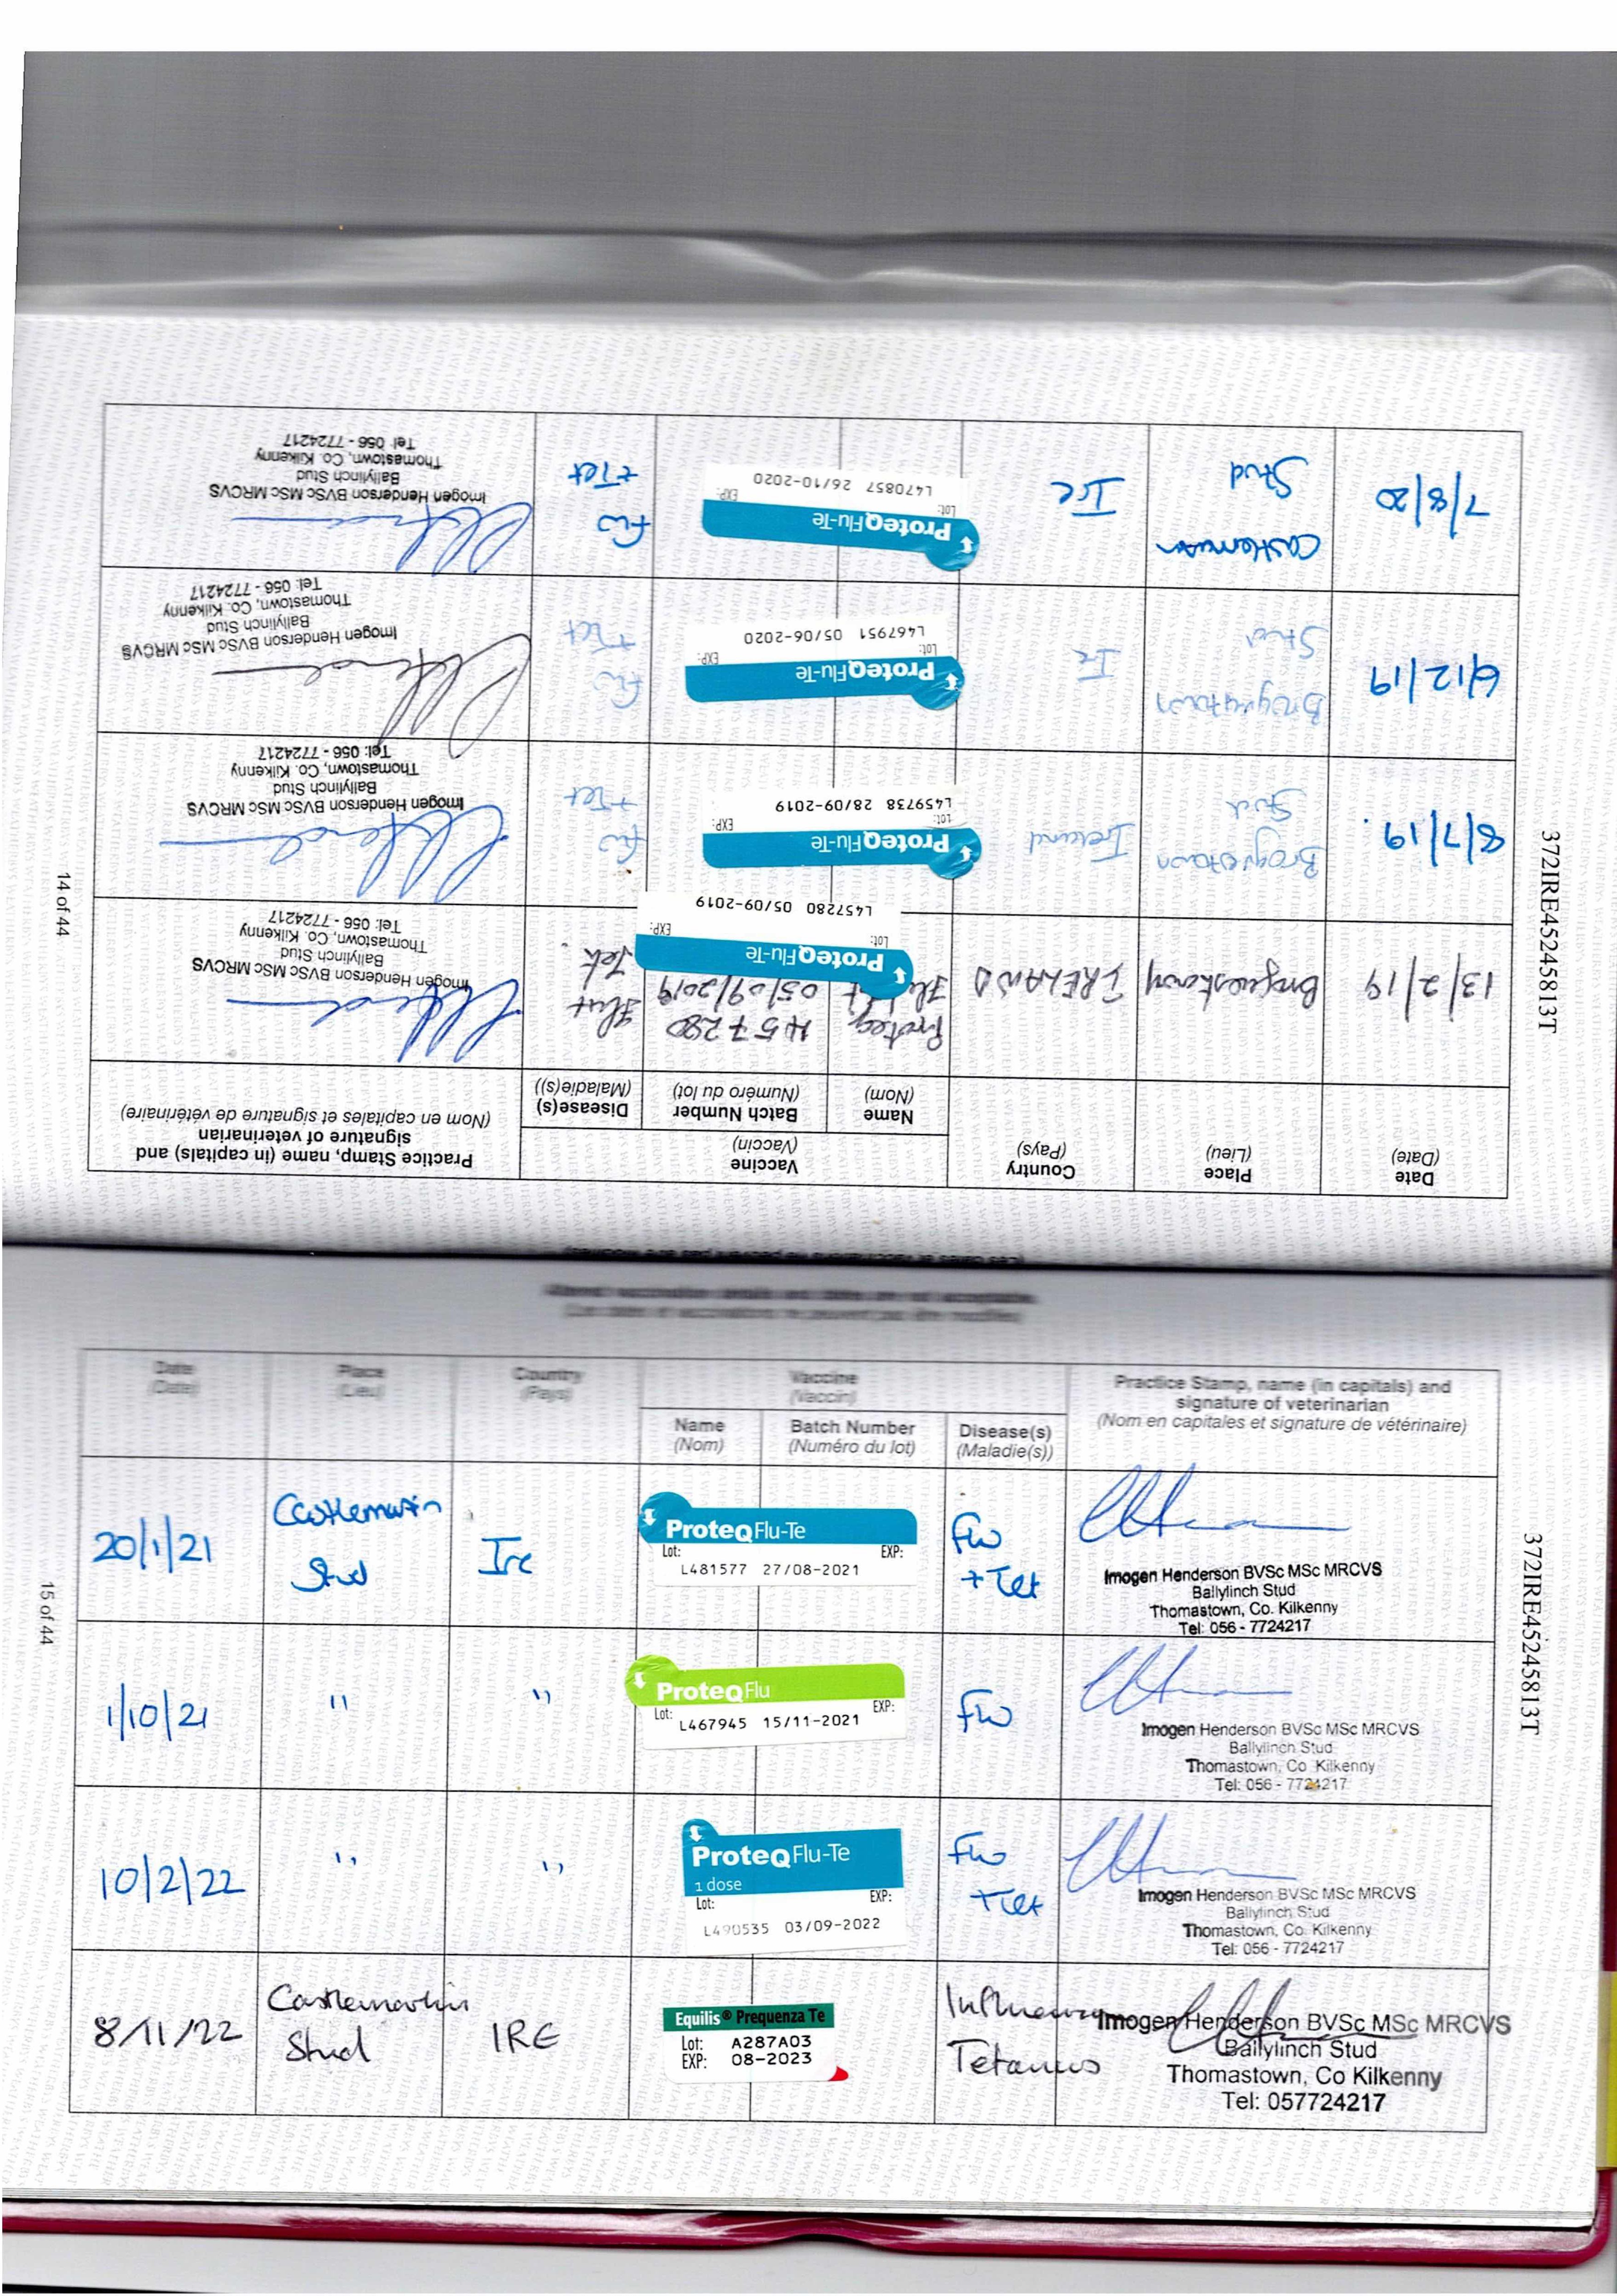 14 of 44
372IRE45245813T
Date
(Date)
Place
(Lieu)
Country
(Pays)
Vaccine
(Vaccin)
Name
(Nom)
Batch Number
(Numéro du lot)
Disease(s)
(Maladie(s))
Practice Stamp, name (in capitals) and
signature of veterinarian
(Nom en capitales et signature de vétérinaire)
13/2/19
IRELAND
Proteq
457280
05/09/2019
ProteqFlu-Te
Lot: EXP:
L457280 05/09-2019
Tet
Imogen Henderson BVSc MSc MRCVS
Ballylinch Stud
Thomastown, Co. Kilkenny
Tel: 056 - 7724217
8/7/19.
Stud
Ireland
ProteqFlu-Te
Lot: EXP:
L459738 28/09-2019
Flu
+Tet
Imogen Henderson BVSc MSc MRCVS
Ballylinch Stud
Thomastown, Co. Kilkenny
Tel: 056 - 7724217
6/12/19
Stud
Ire
ProteqFlu-Te
Lot: EXP:
L467951 05/06-2020
Flu
+Tet
Imogen Henderson BVSc MSc MRCVS
Ballylinch Stud
Thomastown, Co. Kilkenny
Tel: 056 - 7724217
7/8/20
Castlemartin
Stud
Ire
ProteqFlu-Te
Lot: EXP:
L470857 26/10-2020
Flu
+Tet
Imogen Henderson BVSc MSc MRCVS
Ballylinch Stud
Thomastown, Co. Kilkenny
Tel: 056 - 7724217
(Les dates et vaccinations ne peuvent pas être modifiés)
Altered vaccination details and dates are not acceptable.
(Les dates et vaccinations ne peuvent pas être modifiés)
15 of 44
372IRE45245813T
Date
(Date)
Place
(Lieu)
Country
(Pays)
Vaccine
(Vaccin)
Name
(Nom)
Batch Number
(Numéro du lot)
Disease(s)
(Maladie(s))
Practice Stamp, name (in capitals) and
signature of veterinarian
(Nom en capitales et signature de vétérinaire)
20/1/21
Castlemartin
Stud
Ire
ProteqFlu-Te
Lot: EXP:
L481577 27/08-2021
Flu
+ Tet
Imogen Henderson BVSc MSc MRCVS
Ballylinch Stud
Thomastown, Co. Kilkenny
Tel: 056 - 7724217
1/10/21
"
"
ProteqFlu
Lot: EXP:
L467945 15/11-2021
Flu
Imogen Henderson BVSc MSc MRCVS
Ballylinch Stud
Thomastown, Co Kilkenny
Tel: 056 - 7724217
10/2/22
"
"
ProteqFlu-Te
1 dose
Lot: EXP:
L490535 03/09-2022
Flu
+Tet
Imogen Henderson BVSc MSc MRCVS
Ballylinch Stud
Thomastown, Co. Kilkenny
Tel: 056 - 7724217
8/11/22
Castlemartin
Stud
IRE
Equilis® Prequenza Te
Lot: A287A03
EXP: 08-2023
Influenza
Tetanus
Imogen Henderson BVSc MSc MRCVS
Ballylinch Stud
Thomastown, Co Kilkenny
Tel: 057724217